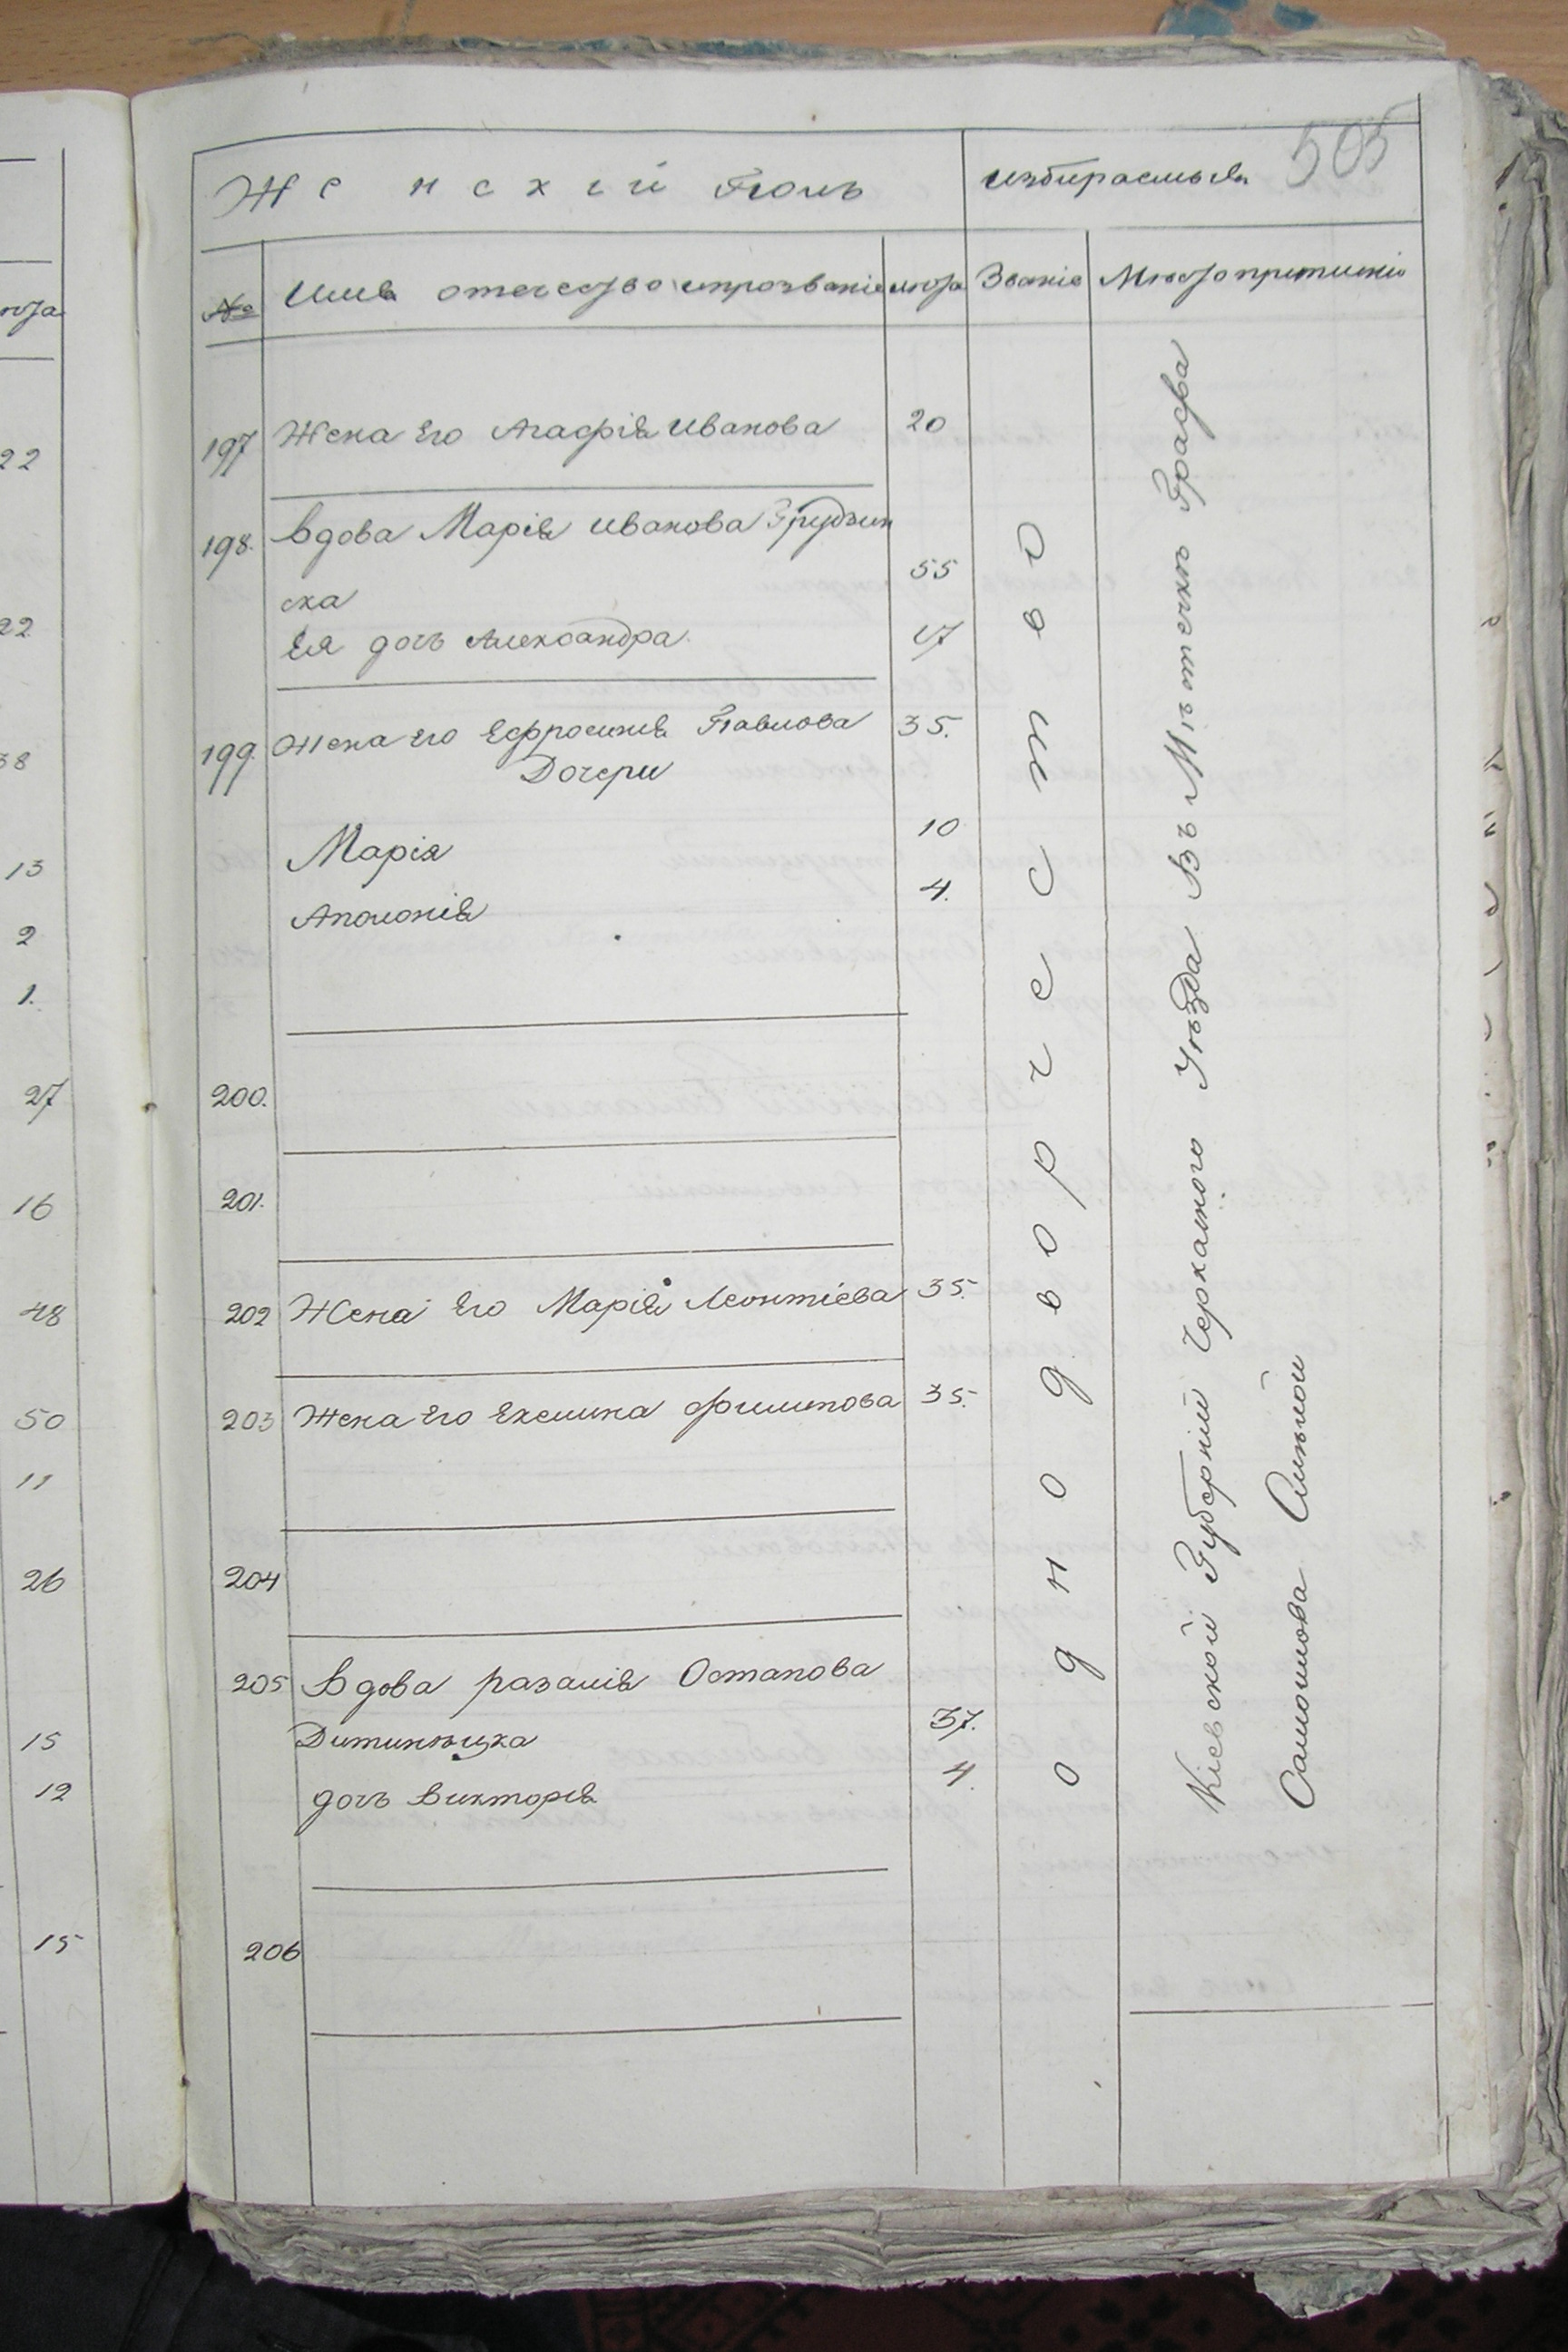 505
Женскій Полъ
избираемыя
№
Имя отечество ипрозваніе
лѣта
Званіе
Мѣсто
197 Жена Его Агафія Иванова 20
198. Вдова Марія Иванова Грудзин
ска 55
Ея дочь Александра. 17
199. Жена его Ефросинія Павлова 35.
Дочери
Марія 10
Аполонія 4.
200.
201.
202 Жена Его Марія Леонтіева 35.
203 Жена Его Екелина Филипова 35.
204
205 Вдова разалія Остапова
37.
дочь Викторія 4.
206
однодворчество
Кіевской Губерніи Черкаского Уѣзда Въ Мѣстечкѣ Графа
Самоилова Смѣлой
22
22
38
13
2
1.
27
16
48
50
11
26
15
12
15